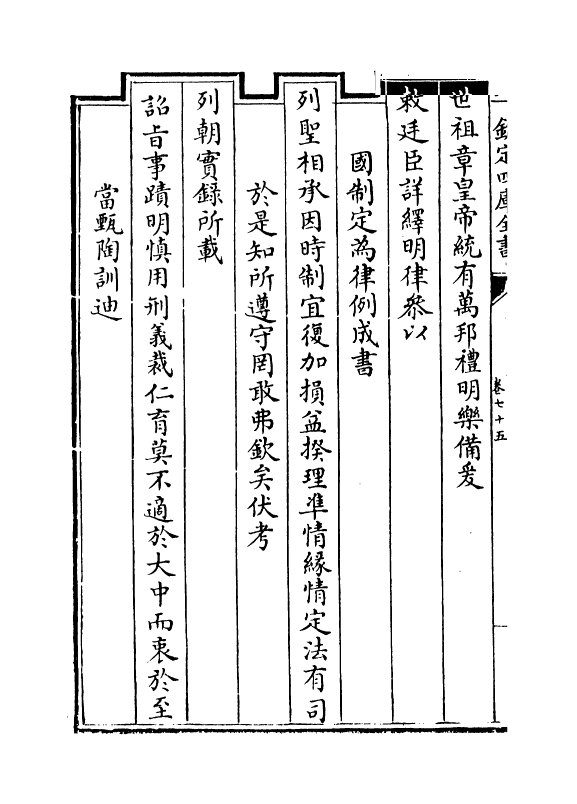 欽定四庫全書
卷七十五
世祖章皇帝統有萬邦禮明樂備爰
敕廷臣詳繹明律叅以
國制定為律例成書
列聖相承因時制宜復加損益揆理準情緣情定法有司
於是知所遵守罔敢弗欽矣伏考
列朝實錄所載
詔旨事蹟明慎用刑義裁仁育莫不適於大中而衷於至
當甄陶訓迪